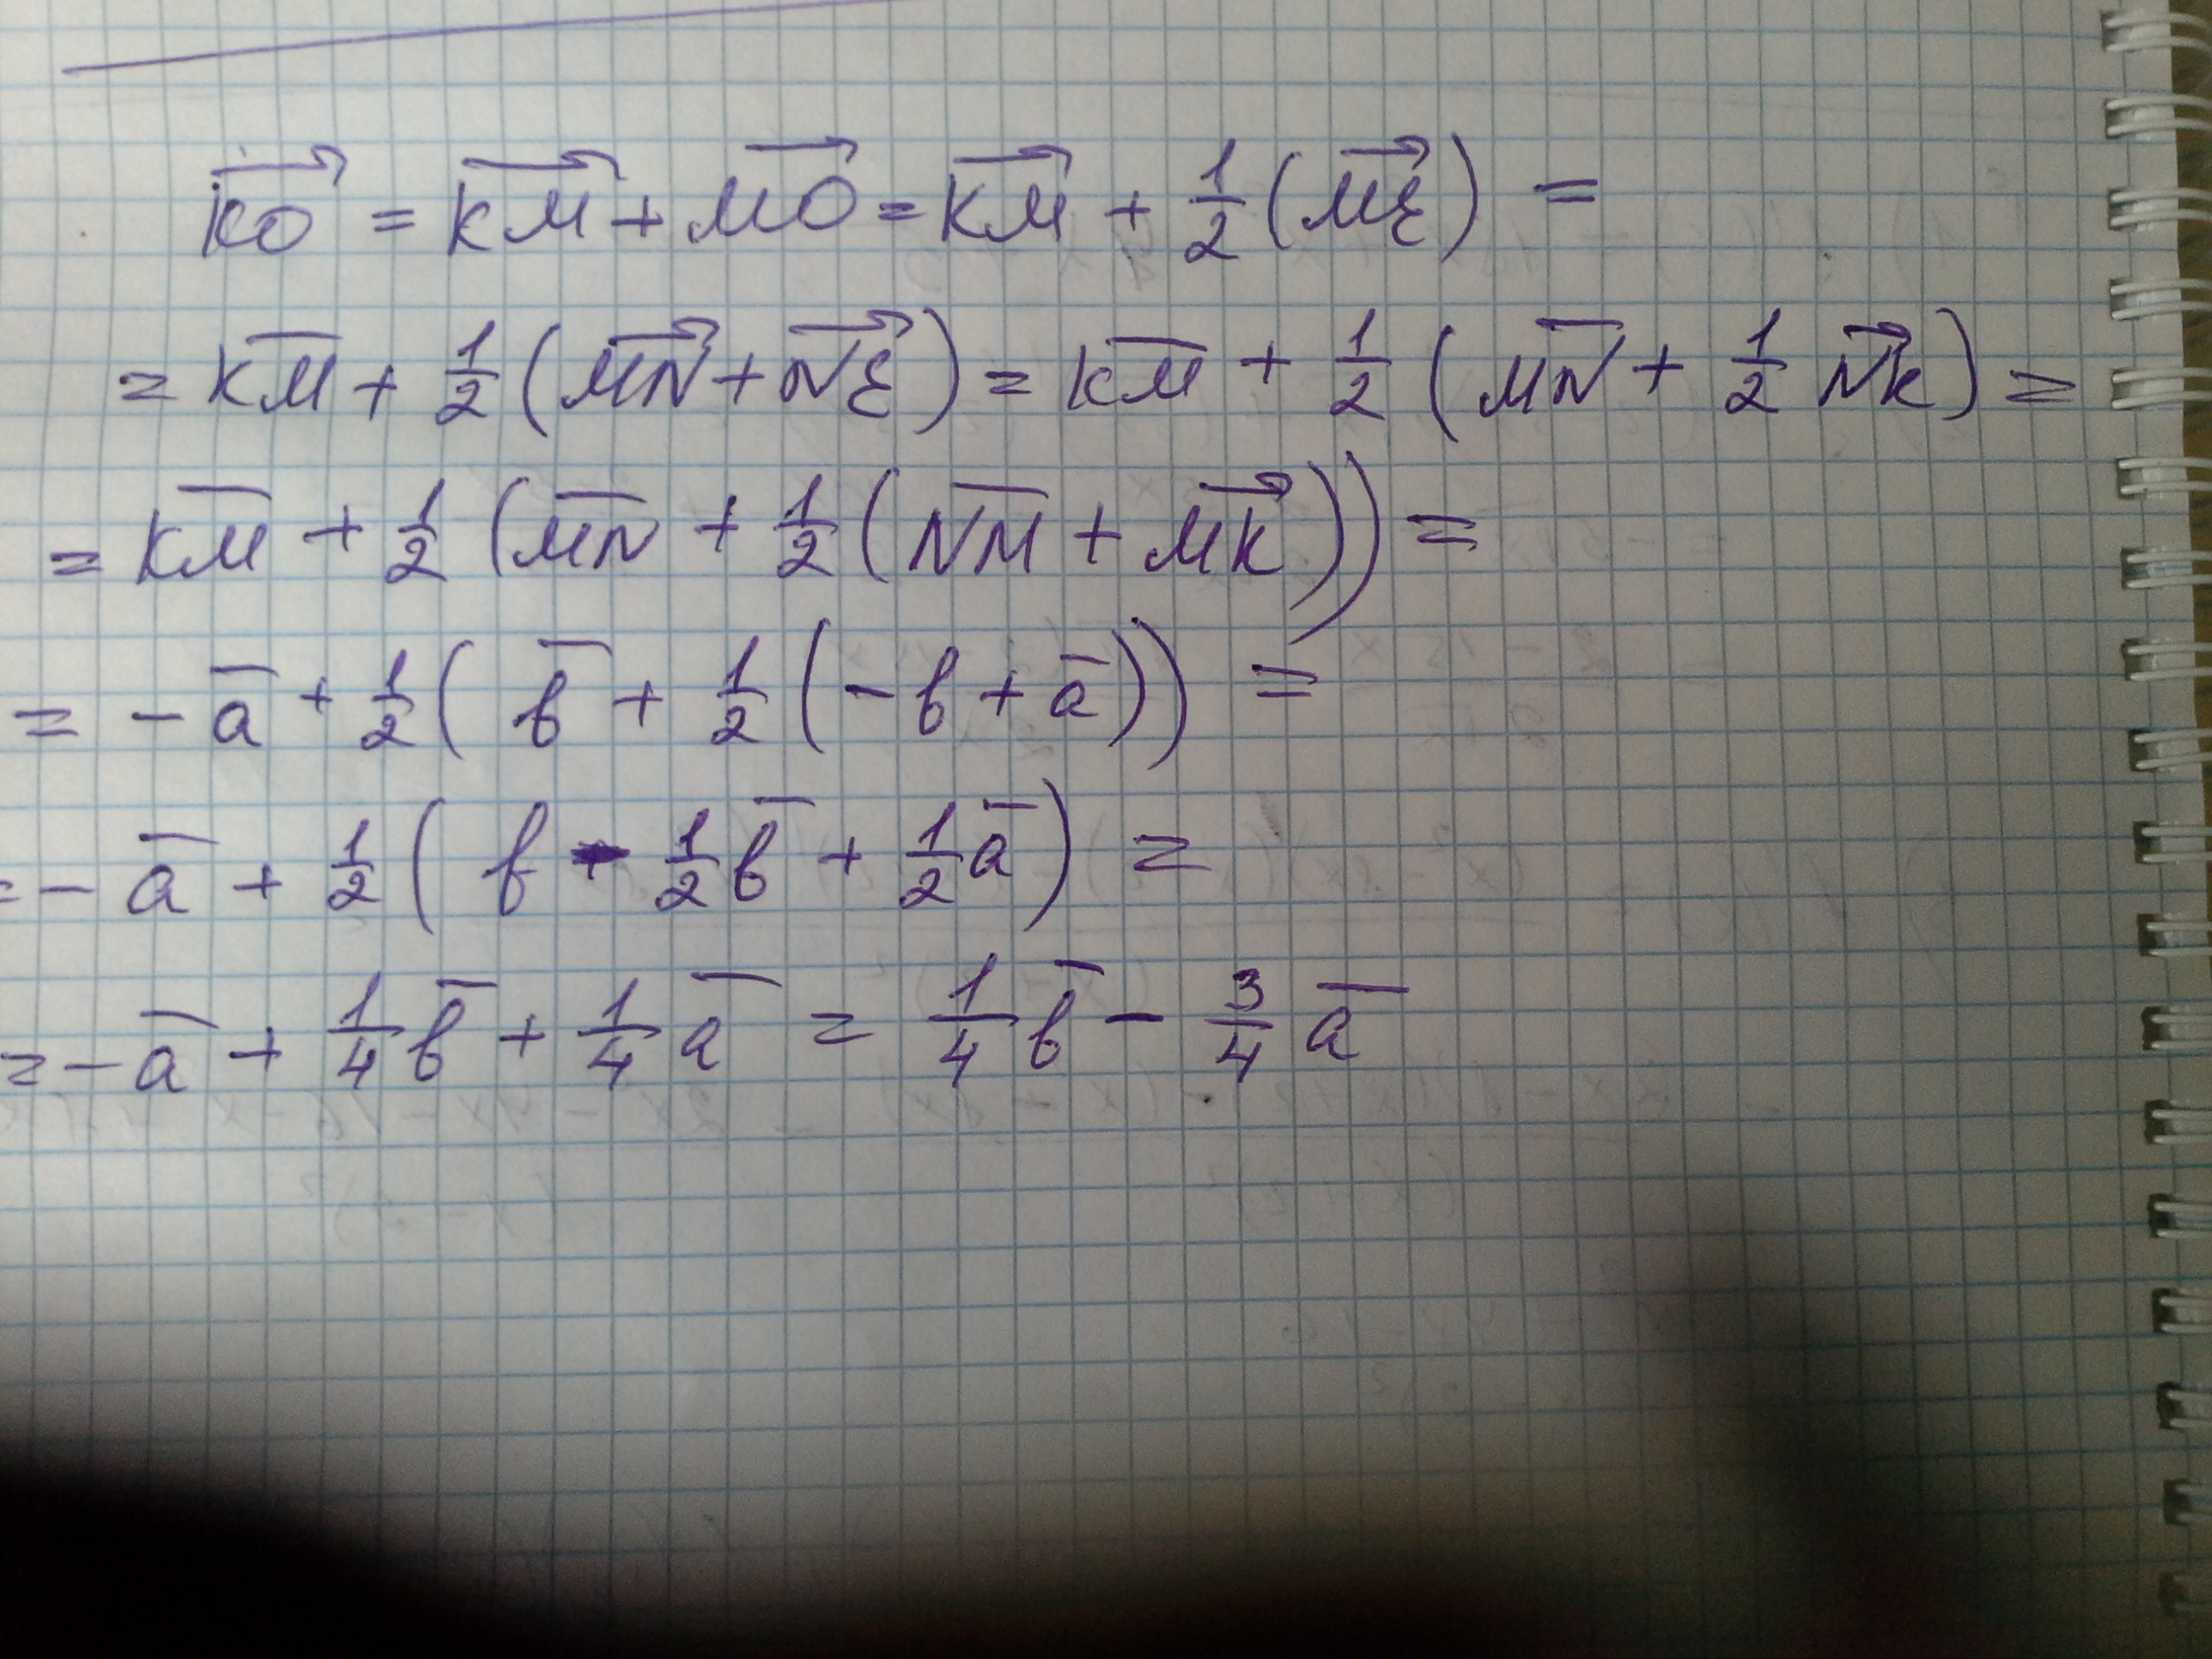 KO = KM + MO = KM + 1/2 (ME) =
= KM + 1/2 (MN + NE) = KM + 1/2 (MN + 1/2 NK) =
= KM + 1/2 (MN + 1/2 (NM + MK)) =
= - a + 1/2 (в + 1/2 (- в + a)) =
= - a + 1/2 (в - 1/2 в + 1/2 a) =
= - a + 1/4 в + 1/4 a = 1/4 в - 3/4 a